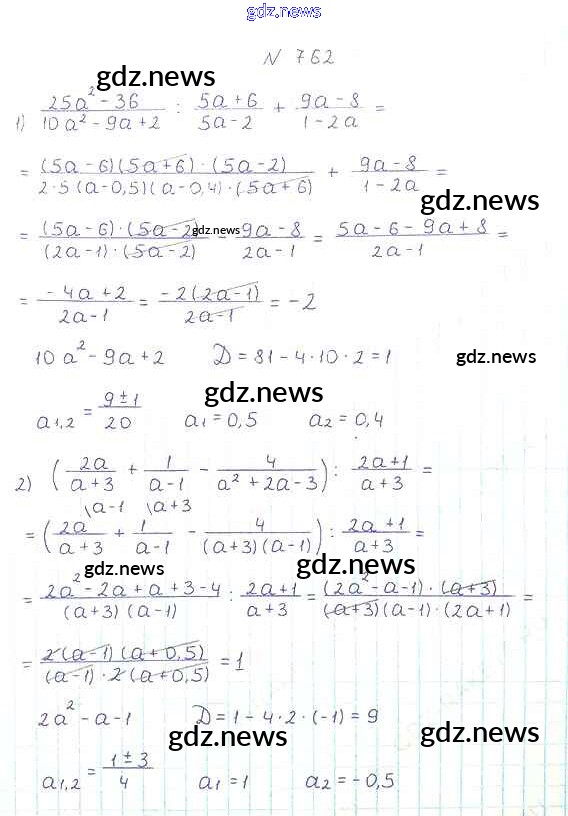 gdz.news
N 762
gdz.news
1) (25a² - 36)/(10a² - 9a + 2) : (5a + 6)/(5a - 2) + (9a - 8)/(1 - 2a) =
= ((5a - 6)(5a + 6) · (5a - 2))/(2 · 5(a - 0,5)(a - 0,4) · (5a + 6)) + (9a - 8)/(1 - 2a) =
gdz.news
= ((5a - 6) · (5a - 2))/((2a - 1) · (5a - 2)) gdz.news - (9a - 8)/(2a - 1) = (5a - 6 - 9a + 8)/(2a - 1) =
= (-4a + 2)/(2a - 1) = (-2(2a - 1))/(2a - 1) = -2
10a² - 9a + 2 D = 81 - 4 · 10 · 2 = 1 gdz.news
gdz.news
a1,2 = (9 ± 1)/20 a1 = 0,5 a2 = 0,4
2) (2a/(a + 3) + 1/(a - 1) - 4/(a² + 2a - 3)) : (2a + 1)/(a + 3) =
\a - 1 \a + 3
= (2a/(a + 3) + 1/(a - 1) - 4/((a + 3)(a - 1))) : (2a + 1)/(a + 3) =
gdz.news gdz.news
= (2a² - 2a + a + 3 - 4)/((a + 3)(a - 1)) : (2a + 1)/(a + 3) = ((2a² - a - 1) · (a + 3))/((a + 3)(a - 1) · (2a + 1)) =
= (2(a - 1)(a + 0,5))/((a - 1) · 2(a + 0,5)) = 1
2a² - a - 1 D = 1 - 4 · 2 · (-1) = 9
gdz.news gdz.news
a1,2 = (1 ± 3)/4 a1 = 1 a2 = -0,5